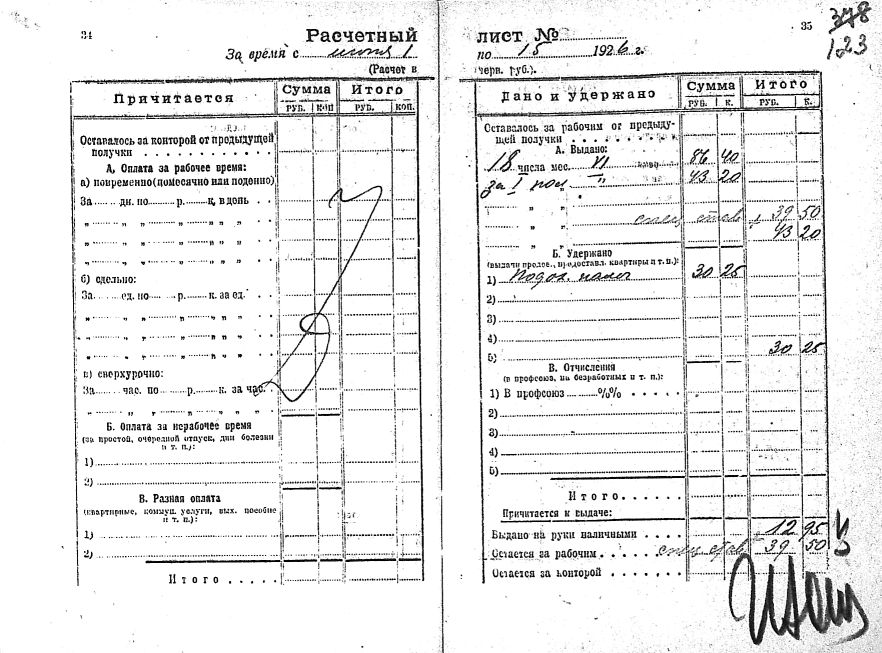 34
Расчетный
За время с июня 1
(Расчет в
Причитается
Сумма
Итого
РУБ. КОП РУБ. КОП.
Оставалось за конторой от предыдущей
получки . . . . . . . . . . . .
А. Оплата за рабочее время:
а) повременно (помесячно или поденно)
За...... дн. по...... р...... к. в день . .
„ „ „ „ „ „ „
„ „ „ „ „ „ „
„ „ „ „ „ „ „
б) сдельно:
За...... ед. по...... р...... к. за ед. . .
„ „ „ „ „ „ „
„ „ „ „ „ „ „
„ „ „ „ „ „ „
в) сверхурочно:
За...... час. по...... р...... к. за час. .
„ „ „ „ „ „ „
Б. Оплата за нерабочее время
(за простой, очередной отпуск, дни болезни
и т. п.):
1)
2)
В. Разная оплата
(квартирные, коммун. услуги, вых. пособие
и т. п.):
1)
2)
Итого . . . . .
35
378
123
лист №
по 15 1926 г.
черв. руб.).
Дано и удержано
Сумма
Итого
РУБ. К. РУБ. К.
Оставалось за рабочим от предыду-
щей получки . . . . . . . .
А. Выдано:
18 числа мес. VI 86 40
за I пол „ 43 20
„ „
„ „ спец став 39 50
„ „ 43 20
Б. Удержано
(выдачи продов., предоставл. квартиры и т. п.):
1) Подох. налог 30 25
2)
3)
4)
5) 30 25
В. Отчисления
(в профсоюз, на безработных и т. п.):
1) В профсоюз ...... %% . . . . .
2)
3)
4)
5)
Итого . . . . . .
Причитается к выдаче:
Выдано на руки наличными . . . . 12 95
Остается за рабочим . спец став 39 50
Остается за конторой . . . . . . .